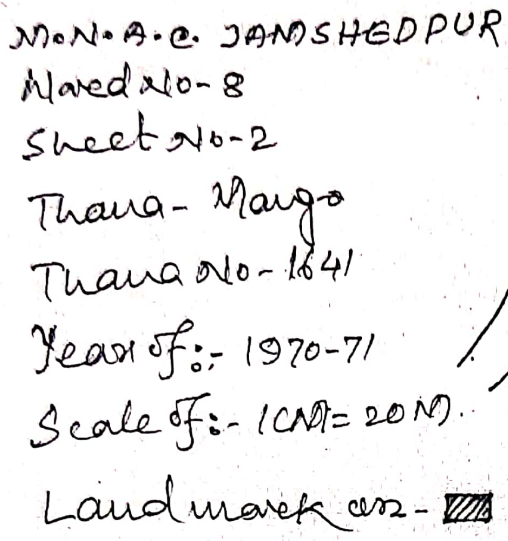 M.N.A.C. JAMSHEDPUR
Ward No-8
Sheet No-2
Thana- Mango
Thana No-1641
Year of:- 1970-71
Scale of:- 1CM= 20M.
Landmark as-